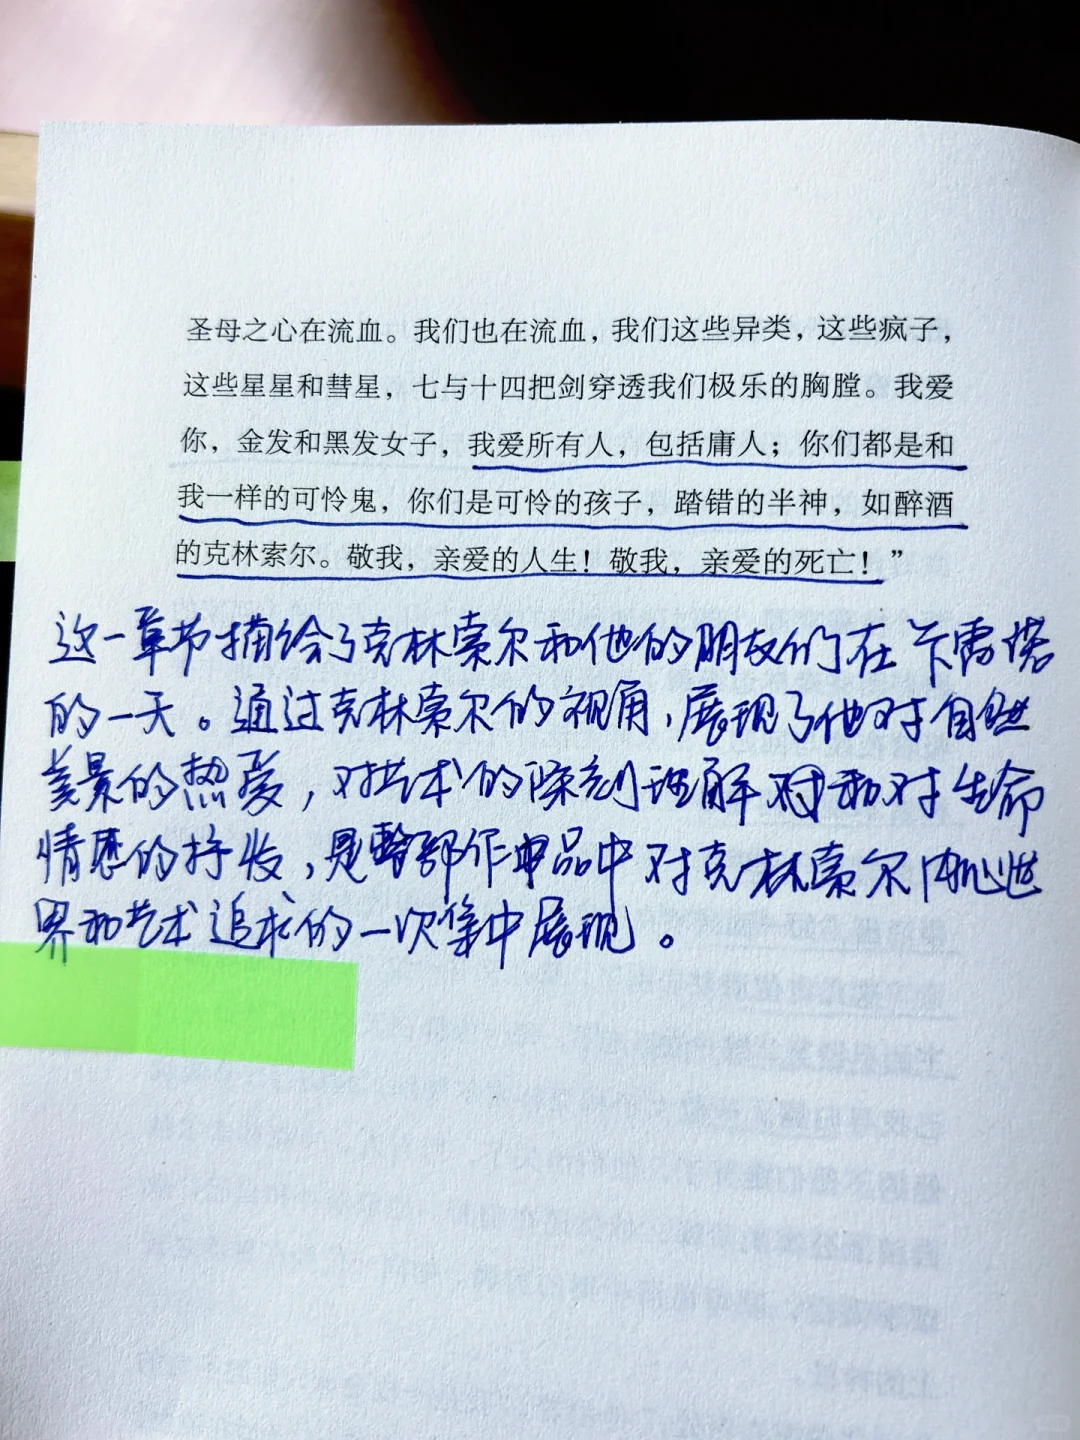 圣母之心在流血。我们也在流血，我们这些异类，这些疯子，
这些星星和彗星，七与十四把剑穿透我们极乐的胸膛。我爱
你，金发和黑发女子，我爱所有人，包括庸人；你们都是和
我一样的可怜鬼，你们是可怜的孩子，踏错的半神，如醉酒
的克林索尔。敬我，亲爱的人生！敬我，亲爱的死亡！”
这一章节描绘了克林索尔和他的朋友们在卡雷诺
的一天。通过克林索尔的视角，展现了他对自然
美景的热爱，对艺术的深刻理解和对生命
情感的抒发，是整部作品中对克林索尔内心世
界和艺术追求的一次集中展现。